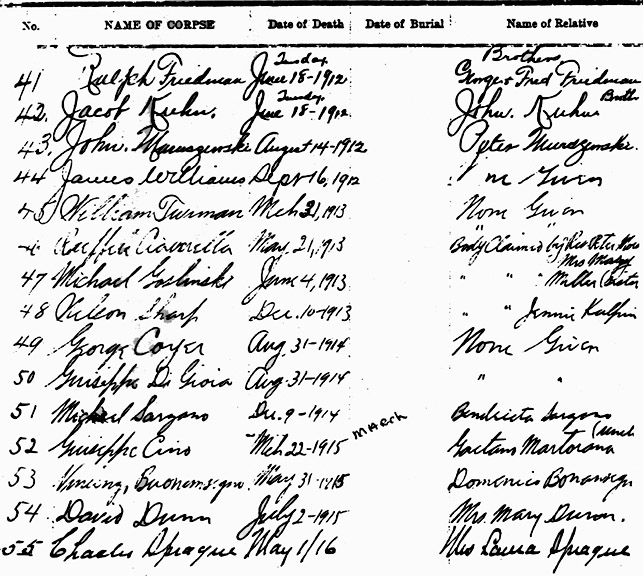 No. NAME OF CORPSE Date of Death Date of Burial Name of Relative
Tuesday Brothers
41 Ralph Friedman June 18-1912 George & Fred Friedman
Tuesday Broth
42. Jacob Kuhn. June 18-1912 John. Kuhn
43. John. August 14-1912 Peter
44 James Williams Sept 16, 1912 Given
45 William Turman Mch 21, 1913 None Given
4 May. 21, 1913 Body Claimed by Rev Peter
Mrs Mary
47 Michael Goslinski June 4, 1913 " " Miller (Sister
48 Nelson Sharp Dec. 10-1913 " " Jennie Kulpin
49 George Coyer Aug 31-1914 None Given
50 Guiseppe Di Gioia Aug 31-1914 " "
51 Michael Sarzano Dec. 9-1914 Sarzano
MARCH (Uncle
52 Giuseppe Cino Mch 22-1915 Gaetano Martorana
53 May 31-1915 Domenico
54 David Dunn July 2-1915 Mrs. Mary Dunn.
55 Charles Sprague May 1/16 Mrs Laura Sprague